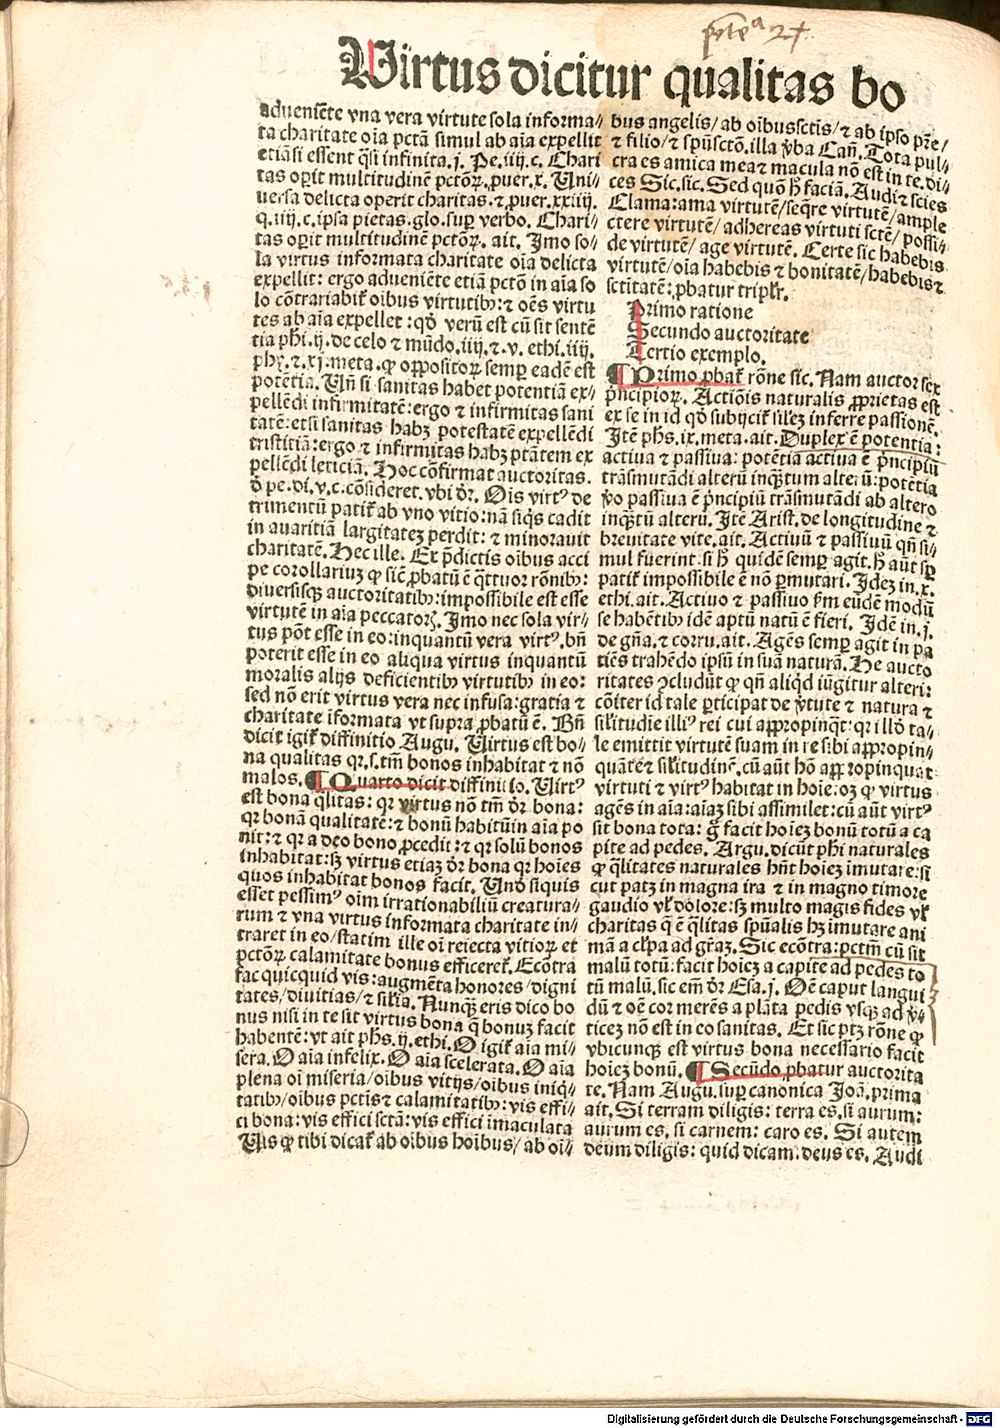 Virtus dicitur qualitas bo
adueniēte vna vera virtute sola informa//
ta charitate oīa pctā simul ab aīa expellit
etiāsi essent q̄si infinita. j. Pe. iiij. c. Chari
tas opit multitudinē pctōꝝ. puer. x. Uni//
uersa delicta operit charitas. ⁊. puer. xxiij.
q. iiij. c. ipsa pietas. glo. suꝑ verbo. Chari//
tas opit multitudinē pctōꝝ. ait. Imo so//
la virtus informata charitate oīa delicta
expellit: ergo adueniēte etiā pctō in aīa so
lo cōtrariabit̄ oībus virtutibꝰ: ⁊ oēs virtu
tes ab aīa expellet: qđ verū est cū sit sentē
tia phi. ij. de celo ⁊ mūdo. iiij. ⁊. v. ethi. iiij.
phy. ⁊. xj. meta. ꝙ oppositoꝝ semꝑ eadē est
potētia. Uñ si sanitas habet potentiā ex//
pellēdi infirmitatē: ergo ⁊ infirmitas sani
tatē: etsi sanitas habꝫ potestatē expellēdi
tristitiā: ergo ⁊ infirmitas habꝫ ptātem ex
pellēdi leticiā. Hoc cōfirmat auctoritas.
đ pe. di. v. c. cōsideret. vbi đr. Oīs virtꝰ de
trimentū patit̄ ab vno vitio: nā siq̄s cadit
in auaritiā largitatez perdit: ⁊ minorauit
charitatē. Hec ille. Ex p̄dictis oībus acci
pe corollariuz ꝙ sic̄ ꝓbatū ē q̄ttuor rōnibꝰ:
diuersisqꝫ auctoritatibꝰ: impossibile est esse
virtutē in aīa peccatorꝫ. Imo nec sola vir//
tus pōt esse in eo: inquantū vera virtꝰ. bñ
poterit esse in eo aliqua virtus inquantū
moralis alijs deficientibꝰ virtutibꝰ in eo:
sed nō erit virtus vera nec infusa: gratia ⁊
charitate īformata vt supra ꝓbatū ē. Bñ
dicit igit̄ diffinitio Augu. Uirtus est bo//
na qualitas qr. s. tm̄ bonos inhabitat ⁊ nō
malos. ¶ Quarto dicit diffinitio. Uirtꝰ
est bona q̄litas: qr virtus nō tm̄ đr bona:
qr bonā qualitatē: ⁊ bonū habitū in aīa po
nit: ⁊ qr a deo bono ꝓcedit: ⁊ qr solū bonos
inhabitat: sꝫ virtus etiaꝫ đr bona qr hoīes
quos inhabitat bonos facit. Unđ siquis
esset pessimꝰ oīm irrationabiliū creatura//
rum ⁊ vna virtus informata charitate in//
traret in eo/ statim ille oī reiecta vitioꝝ et
pctōꝝ calamitate bonus efficeret̄. Ecōtra
fac quicquid vis: augmēta honores/ digni
tates/ diuitias/ ⁊ silīa. Nunqꝫ eris dico bo
nus nisi in te sit virtus bona q̄ bonuꝫ facit
habentē: vt ait phs. ij. ethi. O igit̄ aīa mi//
sera. O aīa infelix. O aīa scelerata. O aīa
plena oī miseria/ oībus vitijs/ oībus iniq̄//
tatibꝰ/ oībus pctīs ⁊ calamitatibꝰ: vis effi//
ci bona: vis effici sctā: vis effici imaculata
Uis ꝙ tibi dicat̄ ab oībus hoībus/ ab oī//
bus angelis/ ab oībus sctīs/ ⁊ ab ipso pr̄e/
⁊ filio/ ⁊ spūsctō. illa ꝟba Cañ. Tota pul//
cra es amica mea ⁊ macula nō est in te. di//
ces Sic. sic. Sed quō h̄ faciā. Audi ⁊ scies
Clama: ama virtutē/ seq̄re virtutē/ ample
ctere virtutē/ adhereas virtuti sctē/ possi//
de virtutē/ age virtutē. Certe sic habebis
virtutē/ oīa habebis ⁊ bonitatē/ habebis ⁊
sctītatē: ꝓbatur triplr̄.
Primo ratione
Secundo auctoritate
Tertio exemplo.
¶ Primo ꝓbat̄ rōne sic. Nam auctor sex
p̄ncipioꝝ. Actiōis naturalis ꝓprietas est
ex se in id qđ subijcit̄ silēꝫ inferre passionē.
Itē phs. ix. meta. ait. Duplex ē potentia:
actiua ⁊ passiua: potētia actiua ē p̄ncipiū
trāsmutādi alterū inqꝫtum alterū: potētia
ꝟo passiua ē p̄ncipiū trāsmutādi ab altero
inqꝫtū alterū. Itē Arist. de longitudine ⁊
breuitate vite. ait. Actiuū ⁊ passiuū qn̄ si//
mul fuerint: si h̄ quidē semꝑ agit. h̄ aūt sꝑ
patit̄ impossibile ē nō ꝑmutari. Idez in. x.
ethi. ait. Actiuo ⁊ passiuo ẜm eūdē modū
se habētibꝰ idē aptū natū ē fieri. Idē in. j.
de gñā. ⁊ corru. ait. Agēs semꝑ agit in pa
tiēs trahēdo ipsū in suā naturā. He aucto
ritates ꝯcludūt ꝙ qn̄ aliqđ iūgitur alteri:
cōiter id tale ꝑticipat de ꝟtute ⁊ natura ⁊
silitudīe illiꝰ rei cui appropinq̄t: qr illđ ta//
le emittit virtutē suam in re sibi appropin//
quātē ⁊ silitudinē. cū aūt hō appropinquat
virtuti ⁊ virtꝰ habitat in hoīe: oꝫ ꝙ virtus
agēs in aīa: aīaꝫ sibi assimilet: cū aūt virtꝰ
sit bona tota: g̊ facit hoīeꝫ bonū totū a ca
pite ad pedes. Argu. dicūt phi naturales
ꝙ q̄litates naturales hn̄t hoīeꝫ īmutare: si
cut patꝫ in magna ira ⁊ in magno timore
gaudio vł dolore: sꝫ multo magis fides vł
charitas q̄ ē q̄litas spūalis hꝫ imutare ani
mā a clꝑa ad gr̄aꝫ. Sic ecōtra: pctm̄ cū sit
malū totū: facit hoīeꝫ a capite ad pedes to
tū malū. sic em̄ đr Esa. j. Oē caput langui
dū ⁊ oē cor merēs a plāta pedis vsqꝫ ad ꝟ//
ticeꝫ nō est in eo sanitas. Et sic ptꝫ rōne ꝙ
vbicunqꝫ est virtus bona necessario facit
hoīeꝫ bonū. ¶ Secūdo ꝓbatur auctorita
te. Nam Augu. suꝑ canonica Joā. prima
ait. Si terram diligis: terra es. si aurum:
aurum es. si carnem: caro es. Si autem
deum diligis: quid dicam. deus es. Audi
Digitalisierung gefördert durch die Deutsche Forschungsgemeinschaft - DFG